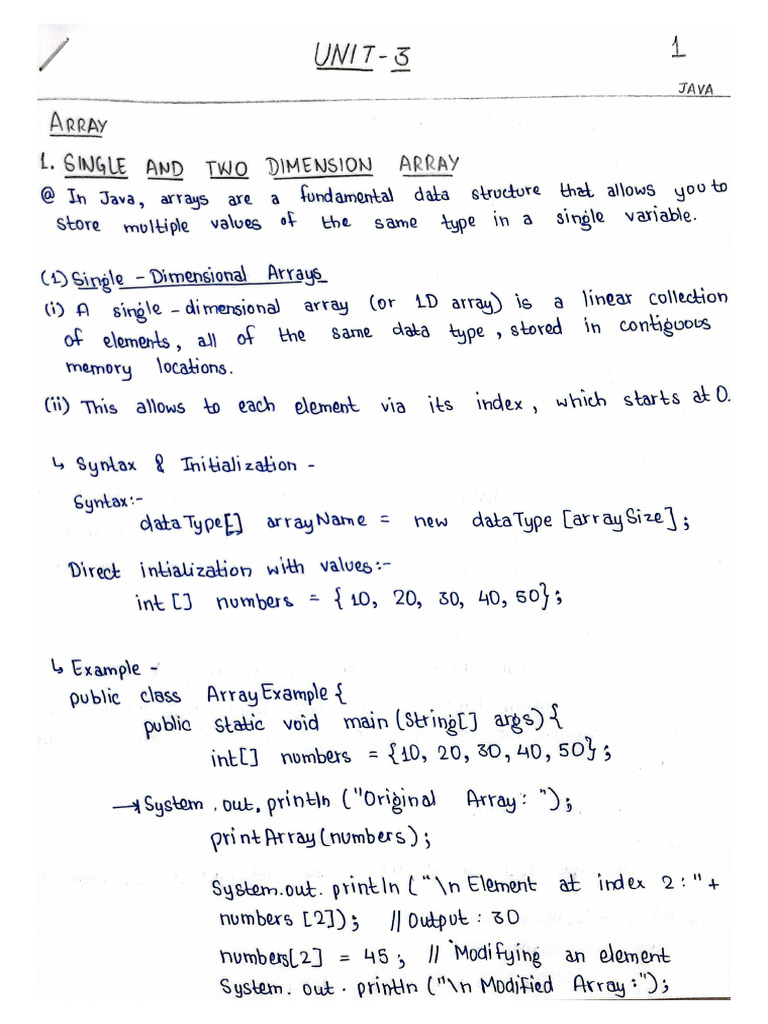 UNIT-3
1
JAVA
ARRAY
1. SINGLE AND TWO DIMENSION ARRAY
@ In Java, arrays are a fundamental data structure that allows you to
store multiple values of the same type in a single variable.
(1) Single-Dimensional Arrays
(i) A single-dimensional array (or 1D array) is a linear collection
of elements, all of the same data type, stored in contiguous
memory locations.
(ii) This allows to each element via its index, which starts at 0.
↳ Syntax & Initialization -
Syntax:-
dataType[] arrayName = new dataType [arraySize];
Direct intialization with values:-
int [] numbers = {10, 20, 30, 40, 50};
↳ Example -
public class ArrayExample {
public static void main (String[] args) {
int[] numbers = {10, 20, 30, 40, 50};
→ System.out.println ("Original Array: ");
printArray(numbers);
System.out.println ("\n Element at index 2:" +
numbers [2]); // Output: 30
numbers[2] = 45; // Modifying an element
System.out.println ("\n Modified Array:");